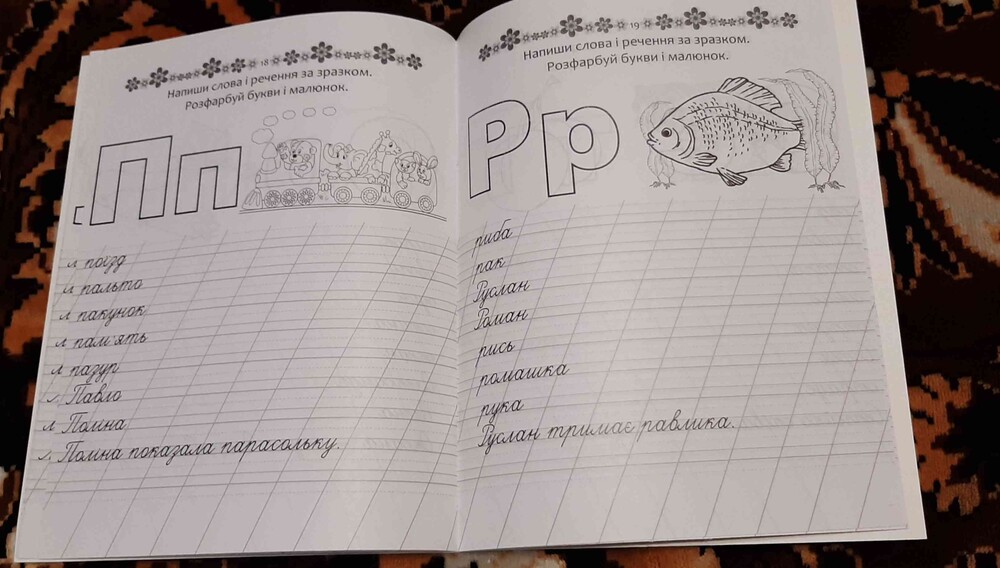 18
Напиши слова і речення за зразком.
Розфарбуй букви і малюнок.
Пп
поїзд
пальто
пакунок
пам'ять
пазур
Павло
Поліна
Поліна показала парасольку.
19
Напиши слова і речення за зразком.
Розфарбуй букви і малюнок.
Рр
риба
рак
Руслан
Роман
рись
ромашка
рука
Руслан тримає равлика.